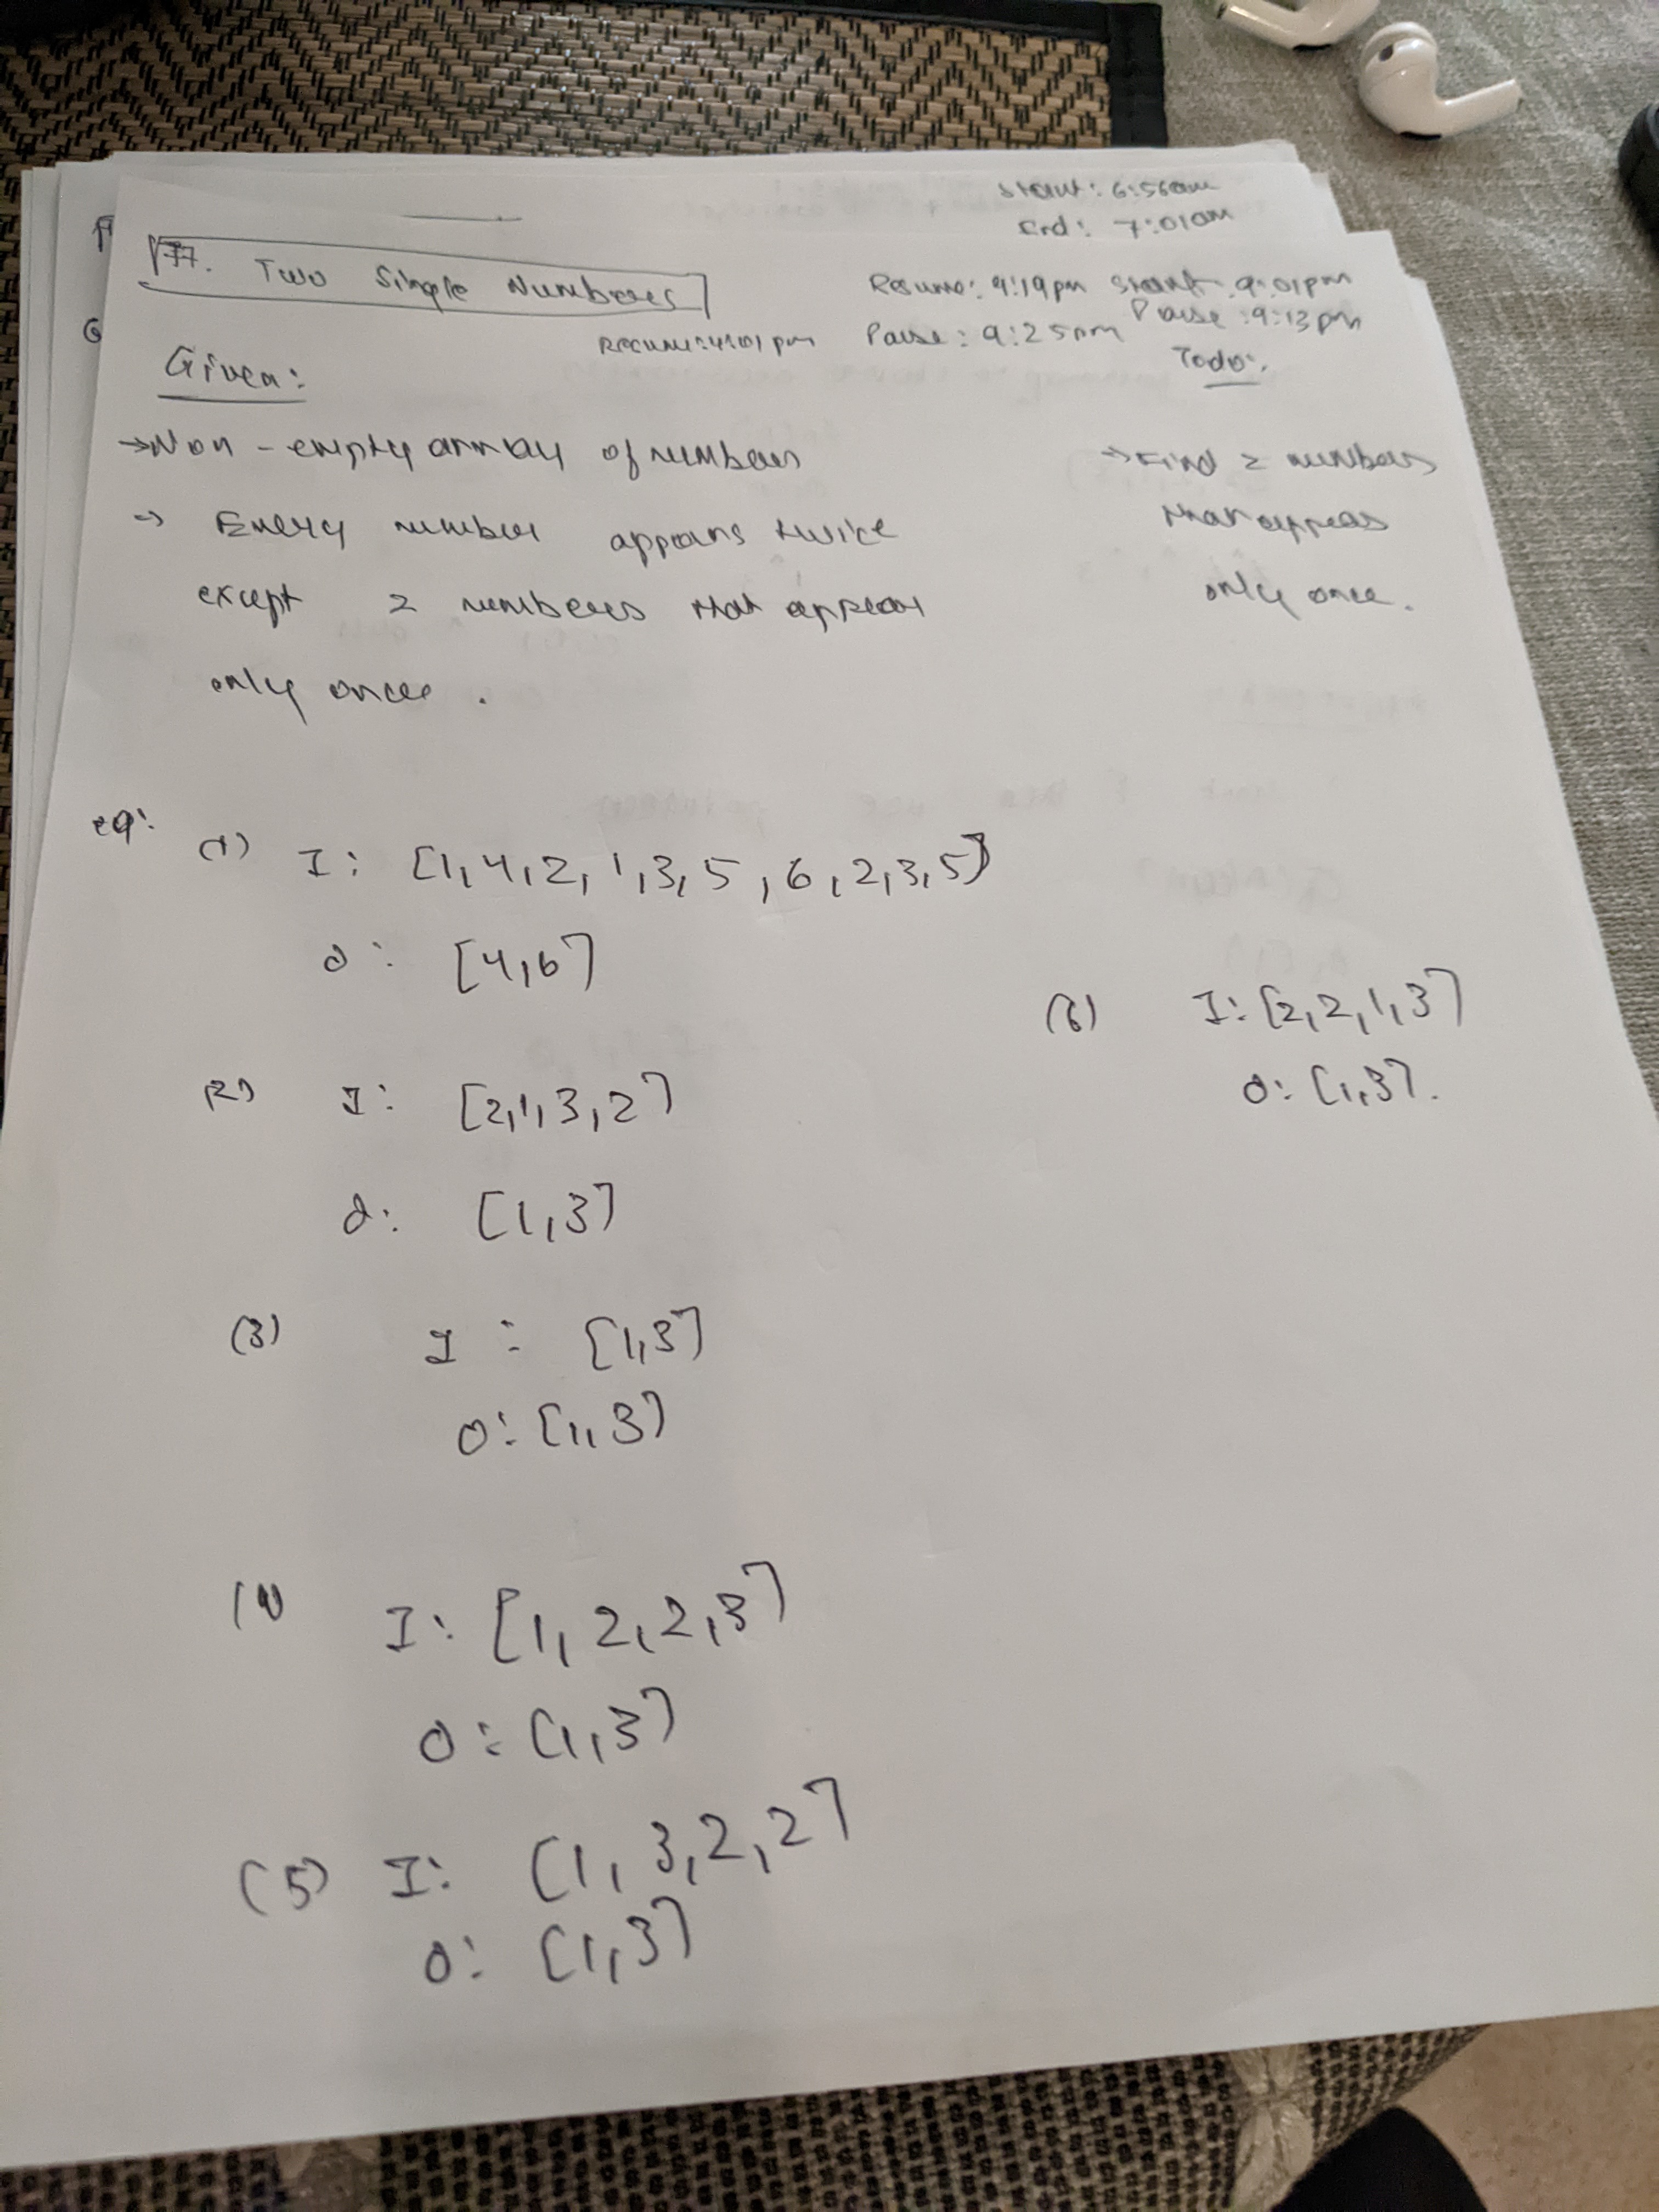 Start: 6:56am
End: 7:01am
77. Two Single Numbers
Resume: 9:19pm Start: 9:01pm
Pause: 9:25pm Pause: 9:13pm
Given:
Todo:
→Non-empty array of numbers
→ Every number appears twice
except 2 numbers that appear
only once.
→Find 2 numbers
that appears
only once.
eg:
(1) I: [1,4,2,1,3,5,6,2,3,5]
O: [4,6]
(2) I: [2,1,3,2]
O: [1,3]
(3) I: [1,3]
O: [1,3]
(4) I: [1,2,2,3]
O: [1,3]
(5) I: [1,3,2,2]
O: [1,3]
(6) I: [2,2,1,3]
O: [1,3].